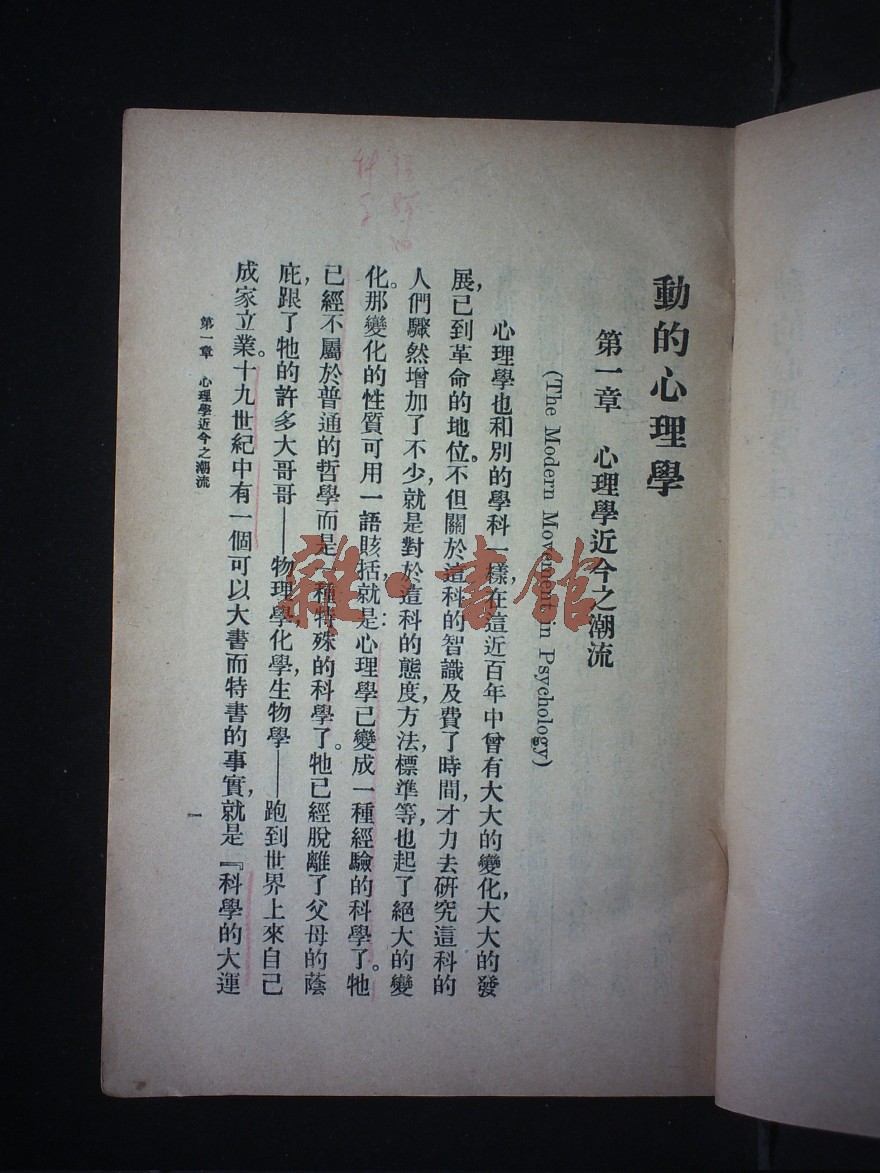 動的心理學
第一章 心理學近今之潮流
(The Modern Movement in Psychology)
心理學也和別的學科一樣,在這近百年中曾有大大的變化,大大的發
展,已到革命的地位。不但關於這科的智識及費了時間,才力去研究這科的
人們驟然增加了不少,就是對於這科的態度,方法,標準等,也起了絕大的變
化。那變化的性質可用一語賅括,就是:心理學已變成一種經驗的科學了。牠
已經不屬於普通的哲學而是一種特殊的科學了。牠已經脫離了父母的蔭
庇,跟了牠的許多大哥哥——物理學,化學,生物學——跑到世界上來自己
成家立業。十九世紀中有一個可以大書而特書的事實,就是『科學的大運
第一章 心理學近今之潮流
一
雜·書館